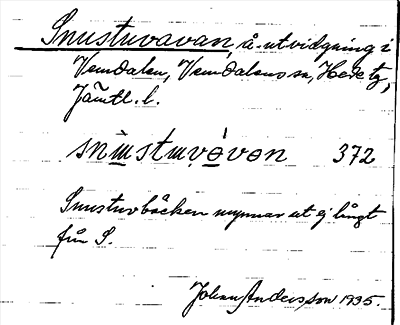 Snustuvavan, å-utvidgning i
Vemdalen, Vemdalens sn, Hede tg,
Jämtl. l.
snùstuvávan 372
Snustuvbäcken mynnar ut ej långt
från S.
Johan Andersson 1935.